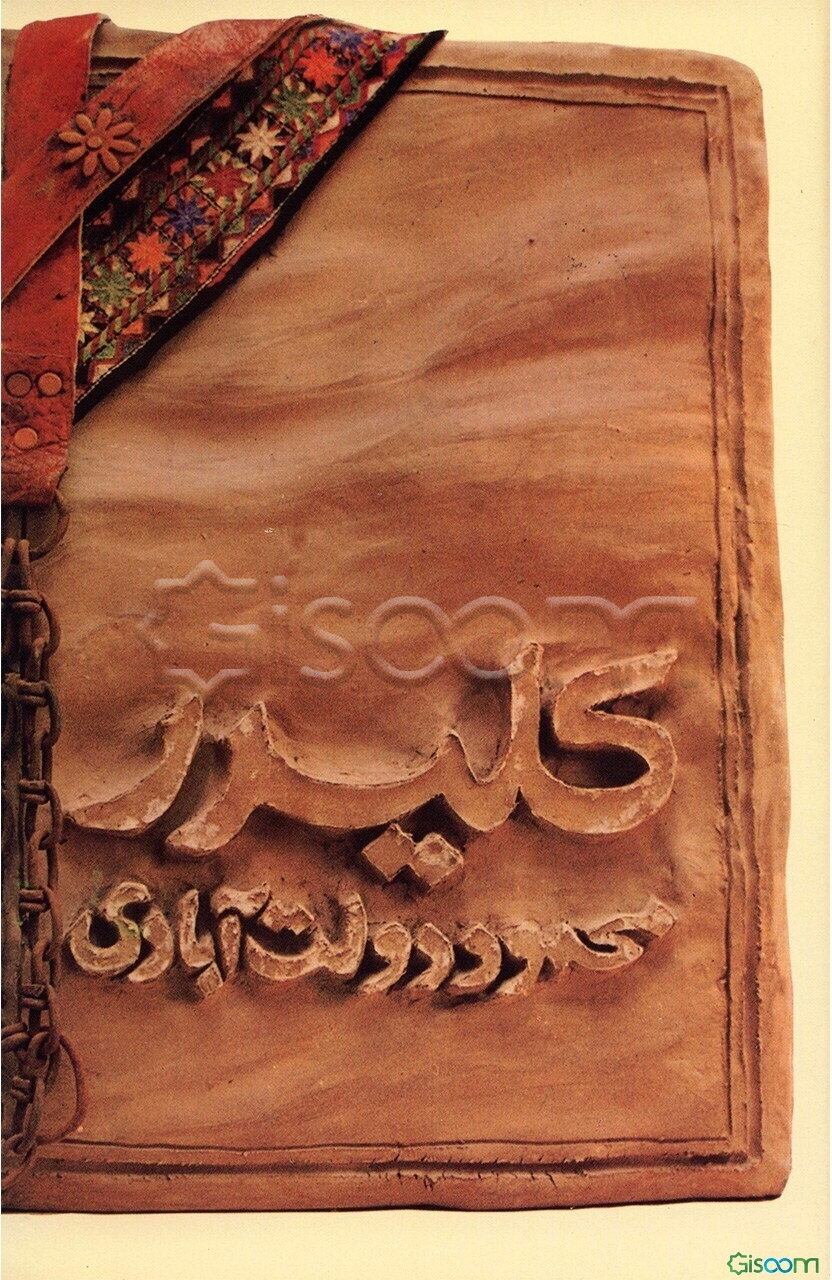 Gisoom
کلیدر
محمود دولت آبادی
Gisoom